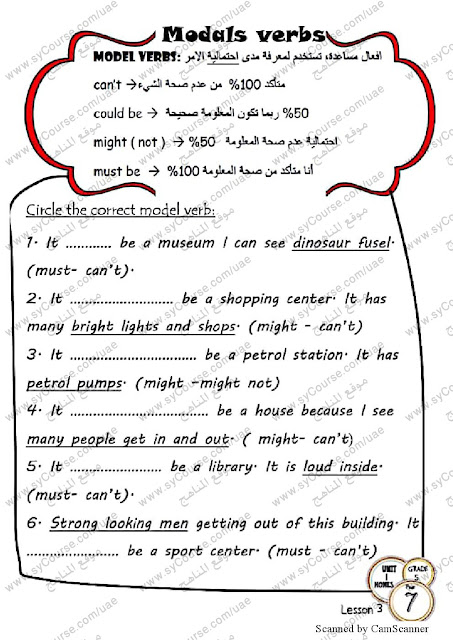 Modals verbs
MODEL VERBS: افعال مساعدة، تستخدم لمعرفة مدى احتمالية الامر
can't → متأكد 100% من عدم صحة الشيء
could be → 50% ربما تكون المعلومة صحيحة
might ( not ) → احتمالية عدم صحة المعلومة 50%
must be → أنا متأكد من صحة المعلومة 100%
Circle the correct model verb:
1. It ............ be a museum I can see dinosaur fusel.
(must- can't).
2. It .......................... be a shopping center. It has
many bright lights and shops. (might - can't)
3. It ................................ be a petrol station. It has
petrol pumps. (might -might not)
4. It ................................... be a house because I see
many people get in and out. ( might- can't)
5. It ...................... be a library. It is loud inside.
(must- can't).
6. Strong looking men getting out of this building. It
........................ be a sport center. (must - can't)
UNIT
1
HOMES
GRADE
5
PAGE
7
Lesson 3
Scanned by CamScanner
www.syCourse.com/uae
موقع المناهج